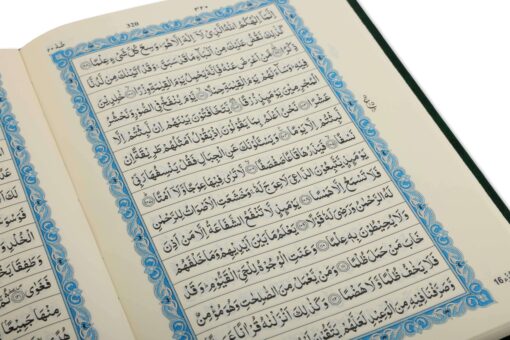 320
٣٢٠
طٰهٰ ٢٠
اِنَّمَاۤ اِلٰهُكُمُ اللّٰهُ الَّذِیْ لَاۤ اِلٰهَ اِلَّا هُوَ وَسِعَ كُلَّ شَیْءٍ عِلْمًا ﴿٩٨﴾
كَذٰلِكَ نَقُصُّ عَلَیْكَ مِنْ اَنْۢبَآءِ مَا قَدْ سَبَقَ وَقَدْ اٰتَیْنٰكَ مِنْ لَّدُنَّا
ذِكْرًا ﴿٩٩﴾ مَنْ اَعْرَضَ عَنْهُ فَاِنَّهٗ یَحْمِلُ یَوْمَ الْقِیٰمَةِ وِزْرًا ﴿١٠٠﴾ خٰلِدِیْنَ
فِیْهِ وَسَآءَ لَهُمْ یَوْمَ الْقِیٰمَةِ حِمْلًا ﴿١٠١﴾ یَّوْمَ یُنْفَخُ فِی الصُّوْرِ وَنَحْشُرُ
الْمُجْرِمِیْنَ یَوْمَئِذٍ زُرْقًا ﴿١٠٢﴾ یَّتَخَافَتُوْنَ بَیْنَهُمْ اِنْ لَّبِثْتُمْ اِلَّا
عَشْرًا ﴿١٠٣﴾ نَحْنُ اَعْلَمُ بِمَا یَقُوْلُوْنَ اِذْ یَقُوْلُ اَمْثَلُهُمْ طَرِیْقَةً اِنْ
لَّبِثْتُمْ اِلَّا یَوْمًا ﴿١٠٤﴾ وَیَسْـَٔلُوْنَكَ عَنِ الْجِبَالِ فَقُلْ یَنْسِفُهَا رَبِّیْ
نَسْفًا ﴿١٠٥﴾ فَیَذَرُهَا قَاعًا صَفْصَفًا ﴿١٠٦﴾ لَّا تَرٰی فِیْهَا عِوَجًا وَّلَاۤ اَمْتًا ﴿١٠٧﴾
یَوْمَئِذٍ یَّتَّبِعُوْنَ الدَّاعِیَ لَا عِوَجَ لَهٗ وَخَشَعَتِ الْاَصْوَاتُ لِلرَّحْمٰنِ
فَلَا تَسْمَعُ اِلَّا هَمْسًا ﴿١٠٨﴾ یَوْمَئِذٍ لَّا تَنْفَعُ الشَّفَاعَةُ اِلَّا مَنْ اَذِنَ
لَهُ الرَّحْمٰنُ وَرَضِیَ لَهٗ قَوْلًا ﴿١٠٩﴾ یَعْلَمُ مَا بَیْنَ اَیْدِیْهِمْ وَمَا خَلْفَهُمْ
وَلَا یُحِیْطُوْنَ بِهٖ عِلْمًا ﴿١١٠﴾ وَعَنَتِ الْوُجُوْهُ لِلْحَیِّ الْقَیُّوْمِ وَقَدْ
خَابَ مَنْ حَمَلَ ظُلْمًا ﴿١١١﴾ وَمَنْ یَّعْمَلْ مِنَ الصّٰلِحٰتِ وَهُوَ مُؤْمِنٌ
فَلَا یَخٰفُ ظُلْمًا وَّلَا هَضْمًا ﴿١١٢﴾ وَكَذٰلِكَ اَنْزَلْنٰهُ قُرْاٰنًا
وَّصَرَّفْنَا فِیْهِ مِنَ الْوَعِیْدِ لَعَلَّهُمْ یَتَّقُوْنَ